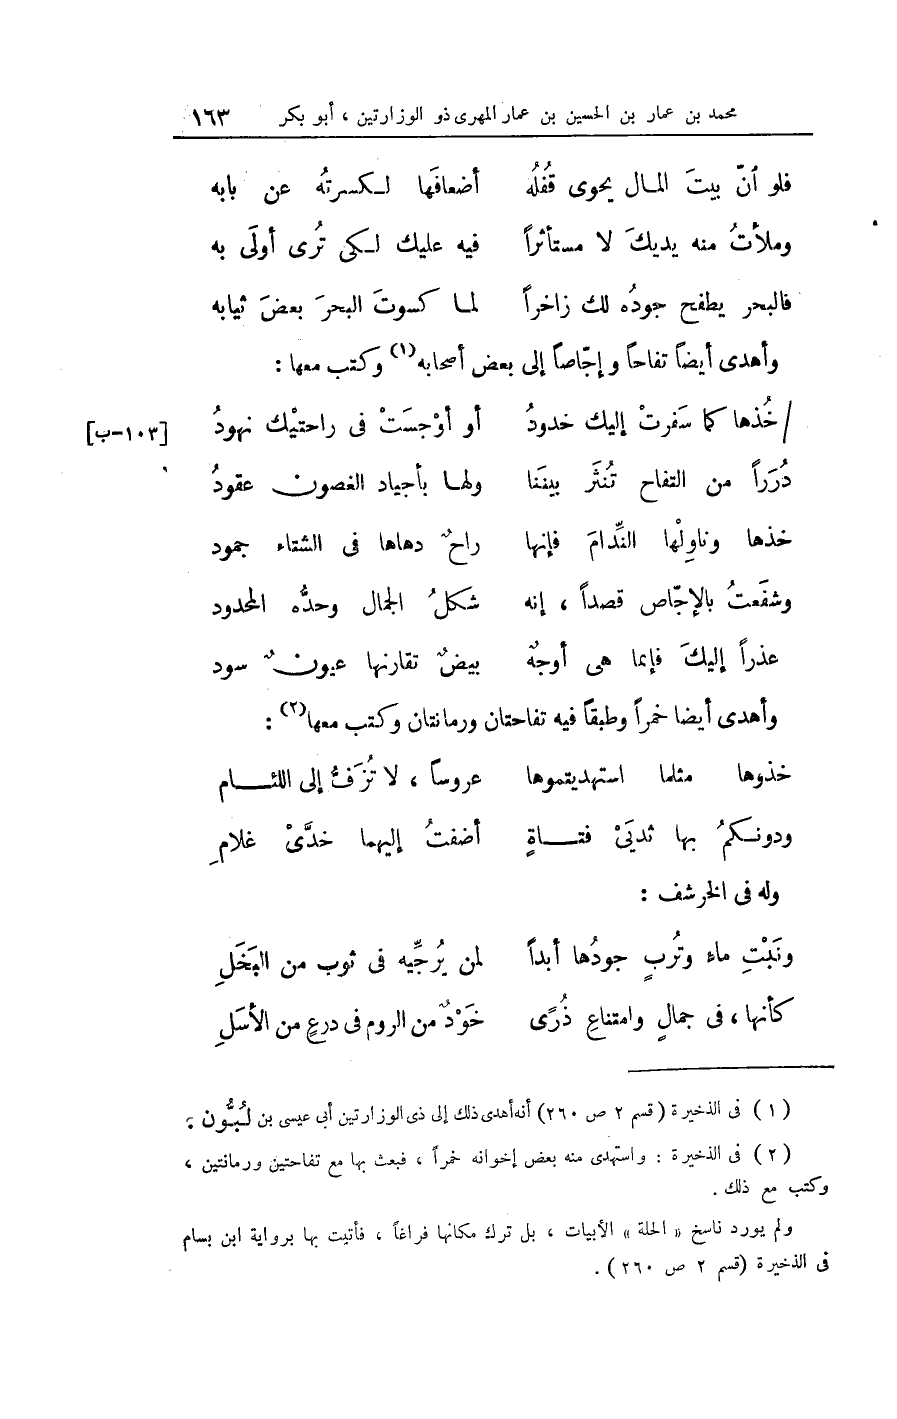 محمد بن عمار بن الحسين بن عمار المهرى ذو الوزارتين ، أبو بكر ١٦٣
فلو ٱنّ بيتَ المـال يحوى قُفْلُه أضعافَها لـكسرتُه عن بابه
وملأتُ منه يديكَ لا مستأثراً فيه عليك لـكى تُرى أولَى به
فالبحر يطفح جودُه لك زاخراً لمـا كسوتَ البحرَ بعضَ ثيابه
وأهدى أيضاً تفاحاً وإجّاصاً إلى بعض أصحابه(١) وكتب معها :
/ خُذها كما سَفرتْ إليك خدودُ أو أوْجسَتْ فى راحتيْك نهودُ [١٠٣-ب]
دُرَراً من التفاح تُنثَر بيننا ولهـا بأجياد الغصون عقودُ
خذها وناولْها النِّدامَ فإنها راحٌ دهاها فى الشتاء جمود
وشفَعتُ بالإجّاص قصداً ، إنه شكلُ الجمال وحدُّه المحدود
عذراً إليكَ فإنما هى أوجهٌ بيضٌ تقارنها عيونٌ سود
وأهدى أيضا خمراً وطبقاً فيه تفاحتان ورمانتان وكتب معها(٢) :
خذوها مثلما استهديتموها عروساً ، لا تُزَفُّ إلى اللئـــام
ودونـكمُ بها ثدىَىْ فتـــاةٍ أضفتُ إليهما خدَّىْ غلامِ
وله فى الخرشف :
ونَبْتِ ماء وتُربٍ جودُها أبداً لمن يُرجِّيه فى ثوب من البَخَلِ
كأنها ، فى جمالٍ وامتناعِ ذُرًى خَوْدٌ من الروم فى درعٍ من الأسَلِ
(١) فى الذخيرة (قسم ٢ ص ٢٦٠) أنه أهدى ذلك إلى ذى الوزارتين أبى عيسى بن لُبُّون .
(٢) فى الذخيرة : واستهدى منه بعض إخوانه خمراً ، فبعث بها مع تفاحتين ورمانتين ،
وكتب مع ذلك .
ولم يورد ناسخ « الحلة » الأبيات ، بل ترك مكانها فراغاً ، فأتيت بها برواية ابن بسام
فى الذخيرة (قسم ٢ ص ٢٦٠) .